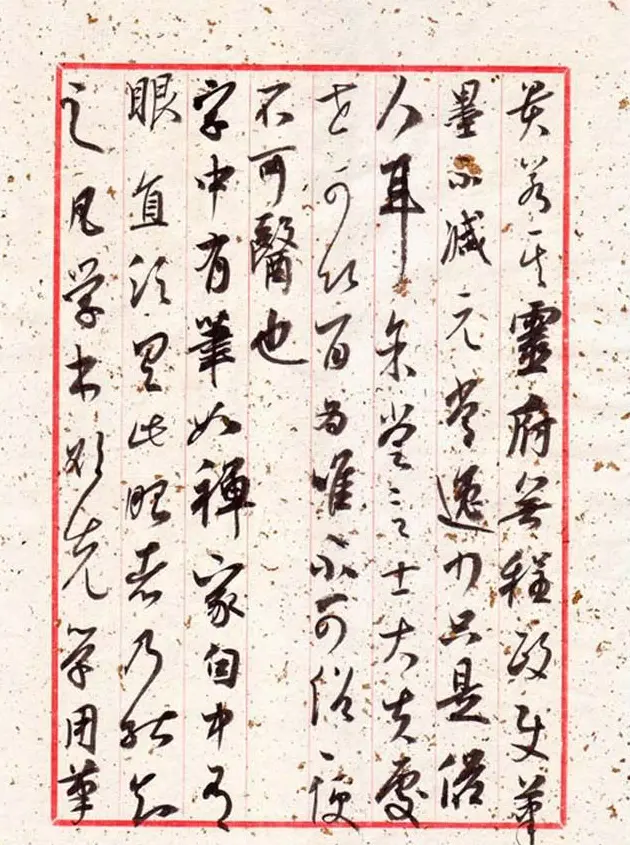 貴若其靈府無程政使筆
墨不減元常逸少只是俗
人耳余嘗言士大夫處
世可以百為唯不可俗俗便
不可醫也
字中有筆如禪家句中有
眼直須具此眼者乃能知
之凡学書欲先学用筆